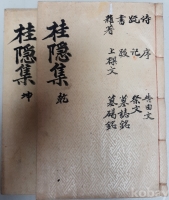 詩 序 告由文
記 祭文
書 跋 墓誌銘
雜著 上樑文 墓碣銘
桂隐集 乾
桂隐集 坤
kobay